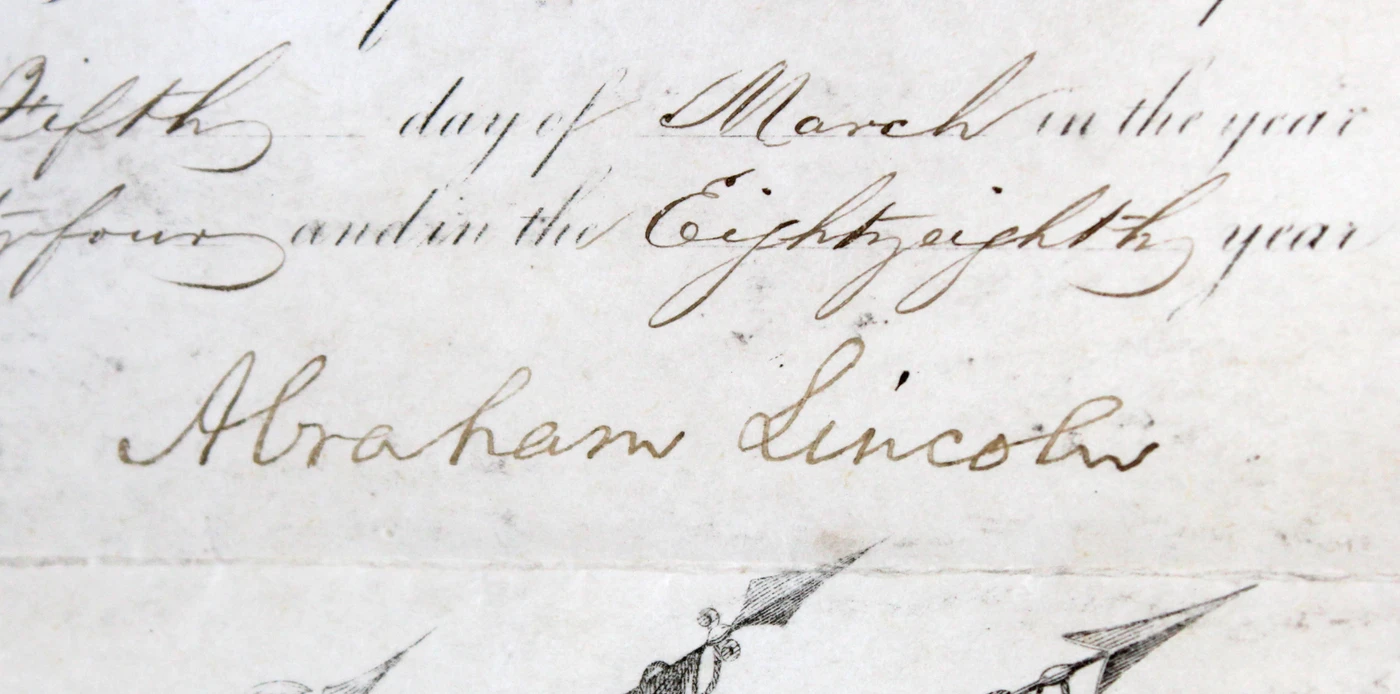 Fifth day of March in the year
four and in the Eighty eighth year
Abraham Lincoln